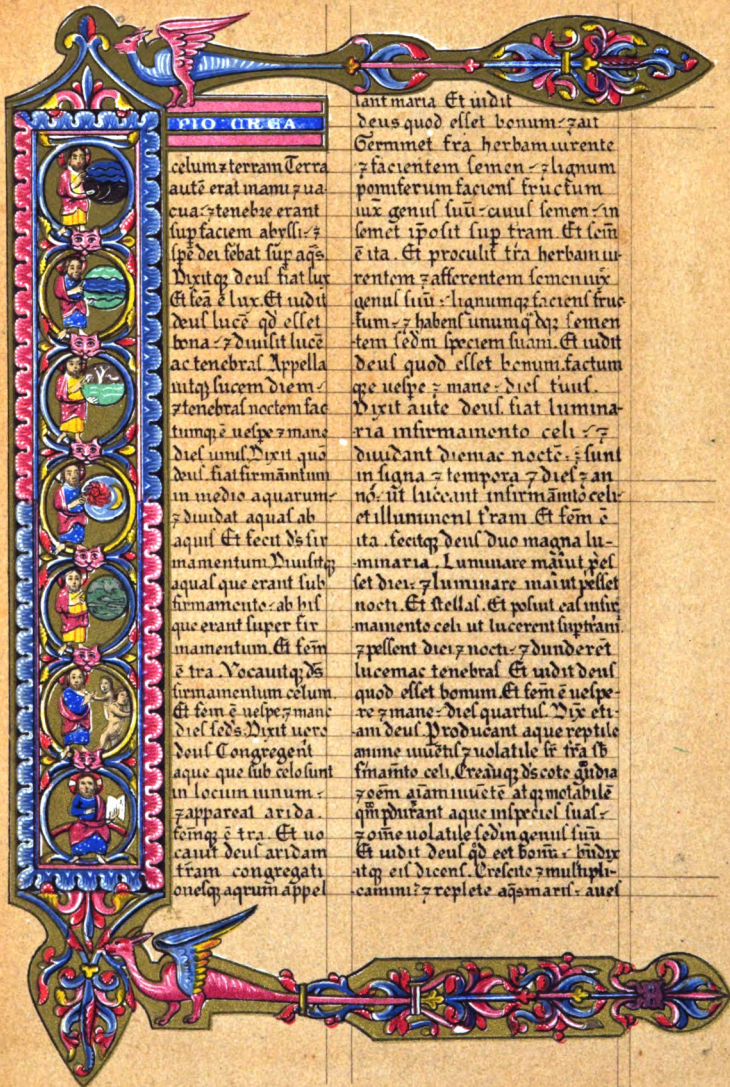 PIO CREA
celum ⁊ terram Terra
autē erat inanis ⁊ ua
cua ⁊ tenebre erant
sup faciem abyssi ⁊
spē dei febat sup aqs
Dixitqꝫ deus fiat lux
Et fēa ē lux. Et uidit
deus lucē qd esset
bona ⁊ diuisit lucē
ac tenebras. Appella
uitqꝫ lucem diem
⁊ tenebras noctem fac
tumqꝫ ē uespe ⁊ mane
dies unus. Dixit quo
deus. fiat firmāmtum
in medio aquarum
⁊ diuidat aquas ab
aquis Et fecit d̄s fir
mamentum. Diuisitqꝫ
aquas que erant sub
firmamento ab his
que erant super fir
mamentum. Et fēm
ē tra. Vocauitqꝫ d̄s
firmamentum celum.
Et fēm ē uespe ⁊ mane
dies seds. Dixit uero
deus Congregent
aque que sub celo sunt
in locum unum
⁊ appareat arida.
fēmqꝫ ē tra. Et uo
cauit deus aridam
tram congregati
onesqꝫ aqrum appel
lant maria Et uidit
deus quod esset bonum ⁊ ait
Germinet tra herbam uirente
⁊ facientem semen ⁊ lignum
pomiferum faciens fructum
iux genus suū cuius semen in
semet ipo sit sup tram. Et fēm
ē ita. Et proculit tra herbam ui
rentem ⁊ afferentem semen iux
genus suū lignumqꝫ faciens fruc
tum ⁊ habens unumqdqꝫ semen
tem sedm speciem suam. Et uidit
deus quod esset bonum. factum
qꝫ uespe ⁊ mane dies tius.
Dixit aute deus. fiat lumina
ria infirmamento celi ⁊
diuidant diem ac noctē ⁊ sunt
in signa ⁊ tempora ⁊ dies ⁊ an
nos. ut luceant infirmāmto celi
et illuminent tram. Et fēm ē
ita. fecitqꝫ deus duo magna lu
minaria. Luminare maiut pes
set diei ⁊ luminare maiut pesset
nocti. Et stellas. Et posuit eas infir
mamento celi ut lucerent sup tram
⁊ pessent diei ⁊ nocti ⁊ dunderet
lucemac tenebras Et uidit deus
quod esset bonum. Et fēm ē uespe
re ⁊ mane dies quartus. Dix eti
am deus. Producant aque reptile
anime uiuentis ⁊ uolatile sr tra sb
fmamto celi. Creauqꝫ d̄s cote gndia
⁊ oēm aiam uiuētē atqꝫ motabilē
qm pdurant aque inspecies suas
⁊ oīne uolatile sed in genus suū
Et uidit deus qd eet bonū bndix
itqꝫ eis dicens. Crescite ⁊ multipli
camini ⁊ replete aqs maris aues